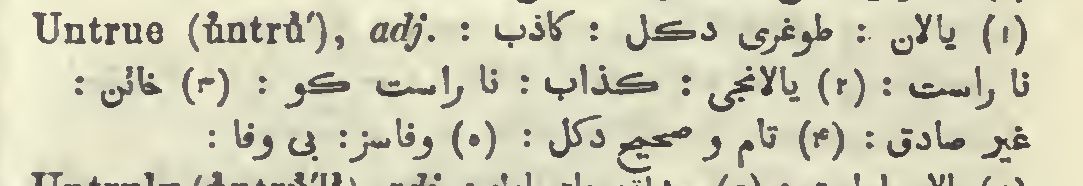 Untrue (ŭntrŭ′), adj. (۱) يالان : طوغری دكل : كاذب :
نا راست : (۲) يالانجی : كذاب : نا راست كو : (۳) خائن :
غير صادق : (۴) تام و صحيح دكل : (۵) وفاسز : بی وفا :